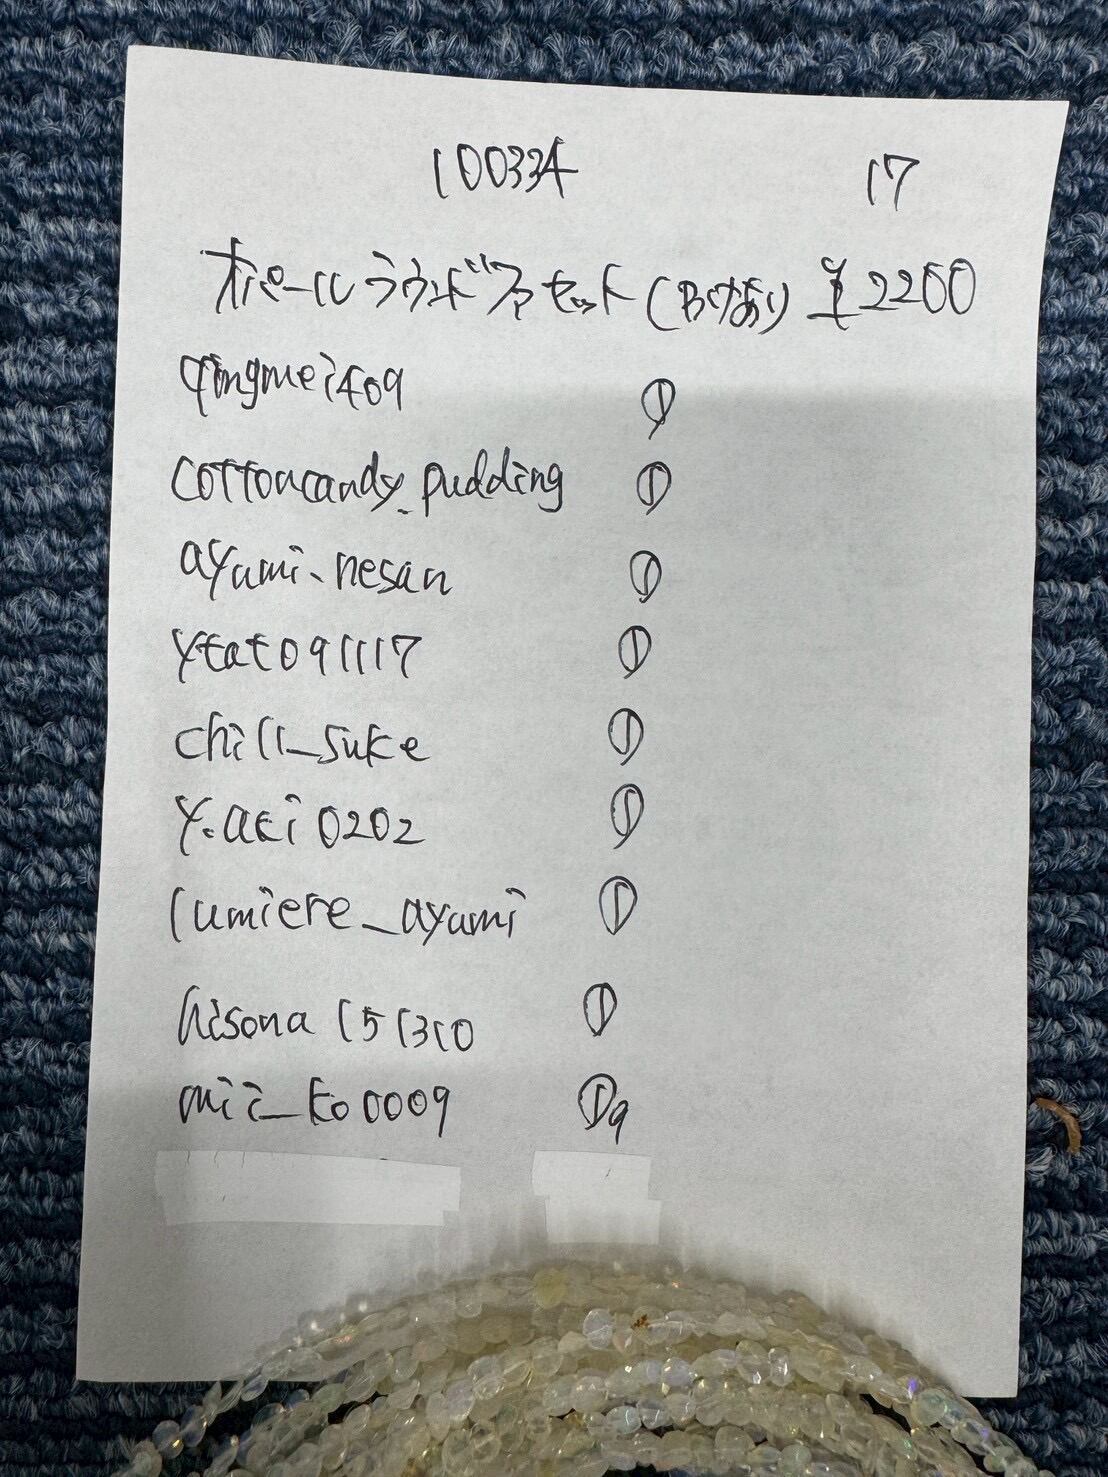 100334 17
オパールラウンドファセット(Bかけあり) ¥2200
qingmei409 ①
cottoncandy_pudding ①
ayami.nesan ①
ytat091117 ①
chill_suke ①
y.aki0202 ①
lumiere_ayumi ①
hisona151310 ①
mii_ko0009 ①9